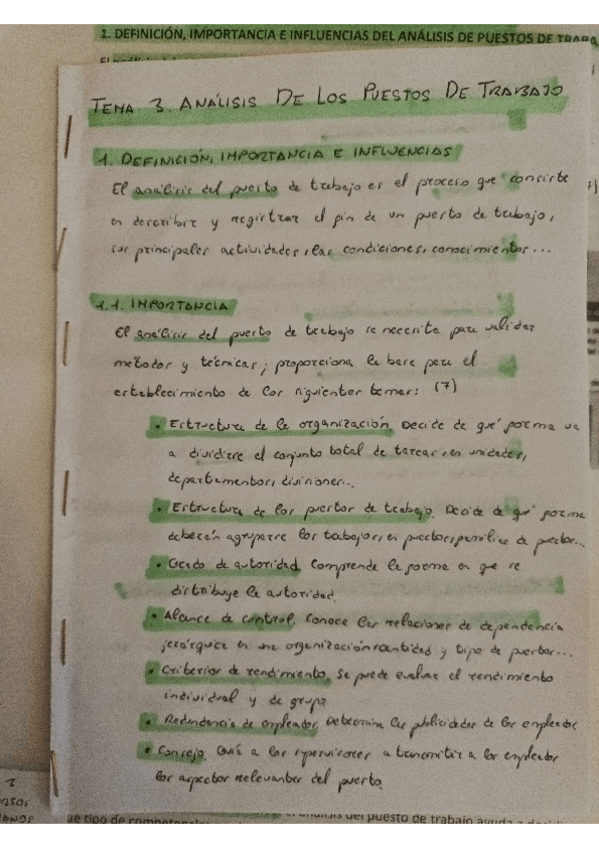 1. DEFINICIÓN, IMPORTANCIA E INFLUENCIAS DEL ANÁLISIS DE PUESTOS DE TRABA
TEMA 3. ANÁLISIS DE LOS PUESTOS DE TRABAJO
1. DEFINICIÓN, IMPORTANCIA E INFLUENCIAS
El análisis del puesto de trabajo es el proceso que consiste
en describir y registrar el fin de un puesto de trabajo,
sus principales actividades, las condiciones, conocimientos...
1.1. IMPORTANCIA
El análisis del puesto de trabajo se necesita para validar
métodos y técnicas; proporciona la base para el
establecimiento de los siguientes temas: (7)
• Estructura de la organización. Decide de qué forma va
a dividirse el conjunto total de tareas, en unidades,
departamentos, divisiones...
• Estructura de los puestos de trabajo. Decide de qué forma
deberán agruparse los trabajos, en puestos, familias de puestos...
• Grado de autoridad. Comprende la forma en que se
distribuye la autoridad.
• Alcance de control. Conoce las relaciones de dependencia
jerárquica en una organización, cantidad y tipo de puestos...
• Criterios de rendimiento. Se puede evaluar el rendimiento
individual y de grupo
• Redundancia de empleados. Determina las de los empleados
• Consejo. Guía a los supervisores a transmitir a los empleados
los aspectos relevantes del puesto.
ue tipo de el análisis del puesto de trabajo ayuda a